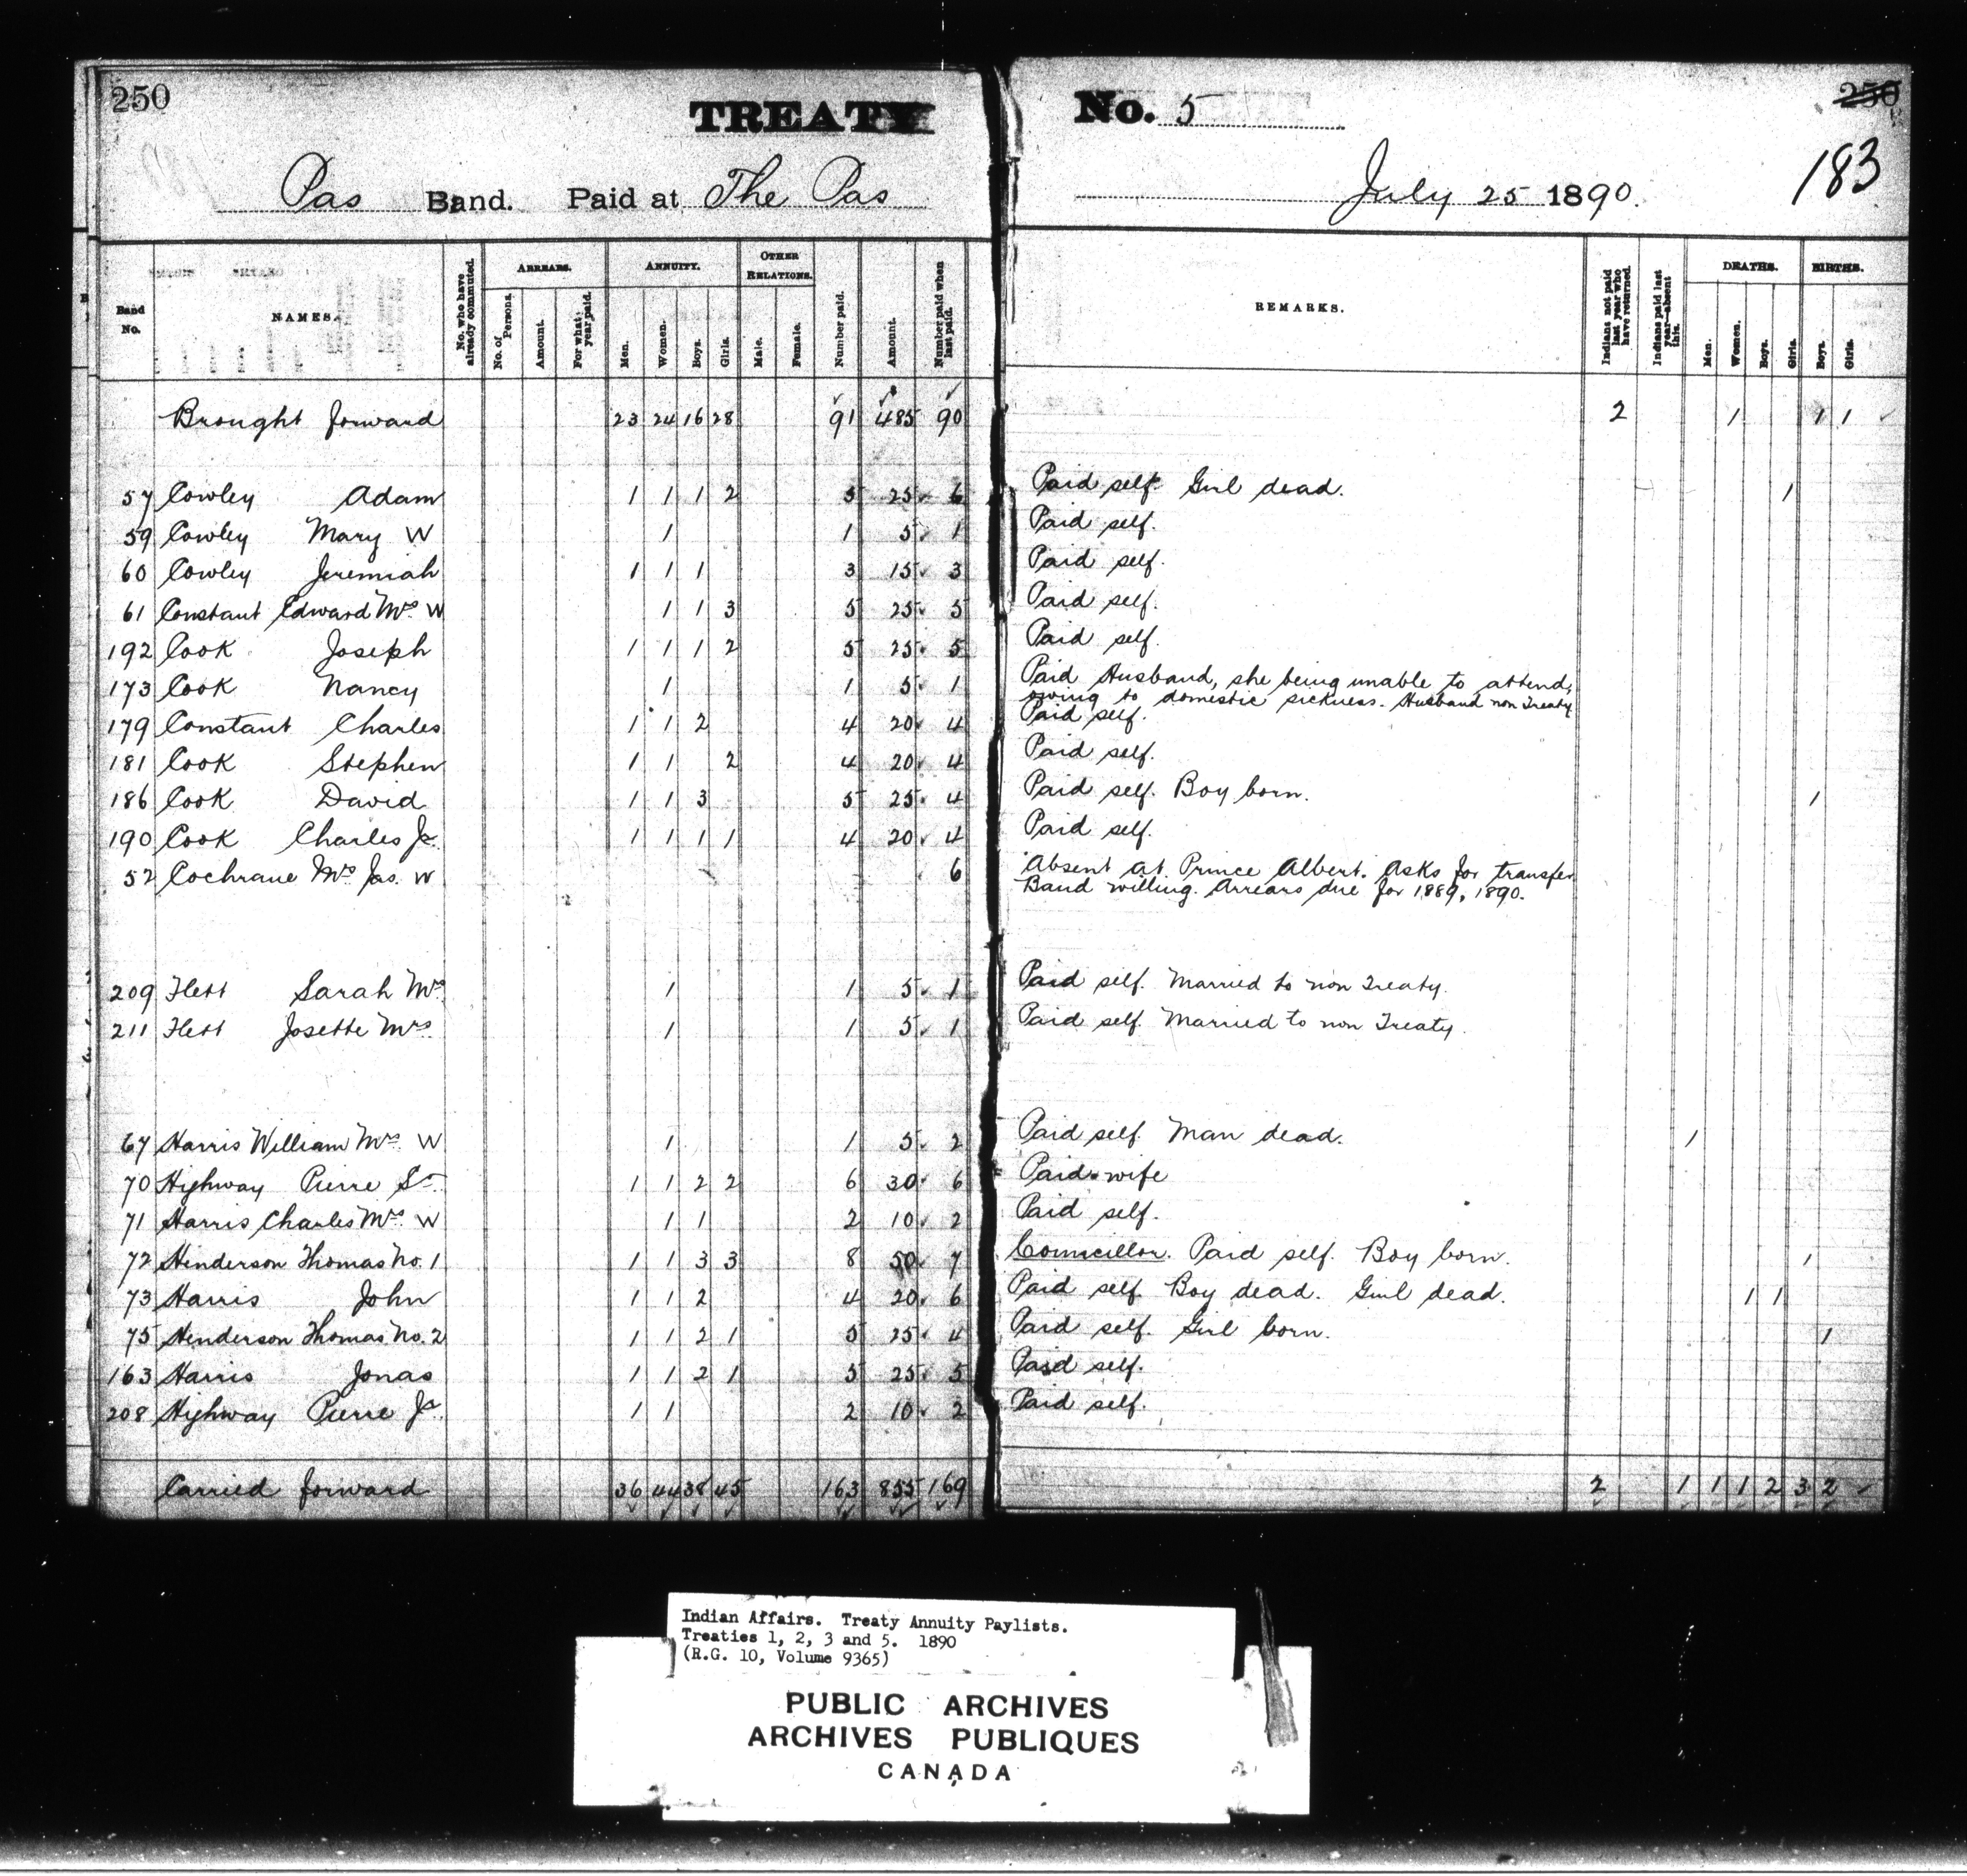 250
TREATY No. 5
250
183
Pas Band. Paid at The Pas July 25 1890.
Band No. NAMES. No. who have already commuted. ARREARS. No. of Persons. Amount. For what year paid. ANNUITY. Men. Women. Boys. Girls. OTHER RELATIONS. Male. Female. Number paid. Amount. Number paid when last paid. REMARKS. Indians not paid last year who have returned. Indians paid last year—absent this. DEATHS. Men. Women. Boys. Girls. BIRTHS. Boys. Girls.
Brought forward 23 24 16 28 91 485 90 2 1 1 1
57 Cowley Adam 1 1 1 2 5 25 6 Paid self. Girl dead. 1
59 Cowley Mary W 1 1 5 1 Paid self.
60 Cowley Jeremiah 1 1 1 3 15 3 Paid self.
61 Constant Edward Mrs. W 1 1 3 5 25 5 Paid self.
192 Cook Joseph 1 1 1 2 5 25 5 Paid self.
173 Cook Nancy 1 1 5 1 Paid Husband, she being unable to attend,
owing to domestic sickness. Husband non Treaty
179 Constant Charles 1 1 2 4 20 4 Paid self.
181 Cook Stephen 1 1 2 4 20 4 Paid self.
186 Cook David 1 1 3 5 25 4 Paid self. Boy born. 1
190 Cook Charles Jr. 1 1 1 1 4 20 4 Paid self.
52 Cochrane Mrs Jas. W 6 Absent at Prince Albert. Asks for transfer
Band willing. Arrears due for 1889, 1890.
209 Flett Sarah Mrs. 1 1 5 1 Paid self. Married to non Treaty.
211 Flett Josette Mrs. 1 1 5 1 Paid self. Married to non Treaty.
67 Harris William Mrs. W 1 1 5 2 Paid self. Man dead. 1
70 Highway Pierre Sr. 1 1 2 2 6 30 6 Paid wife
71 Harris Charles Mrs. W 1 1 2 10 2 Paid self.
72 Henderson Thomas No. 1 1 1 3 3 8 50 7 Councillor. Paid self. Boy born. 1
73 Harris John 1 1 2 4 20 6 Paid self. Boy dead. Girl dead. 1 1
75 Henderson Thomas No. 2 1 1 2 1 5 25 4 Paid self. Girl born. 1
163 Harris Jonas 1 1 2 1 5 25 5 Paid self.
208 Highway Pierre Jr. 1 1 2 10 2 Paid self.
Carried forward 36 44 38 45 163 855 169 2 1 1 1 2 3 2
Indian Affairs. Treaty Annuity Paylists.
Treaties 1, 2, 3 and 5. 1890
(R.G. 10, Volume 9365)
PUBLIC ARCHIVES
ARCHIVES PUBLIQUES
CANADA